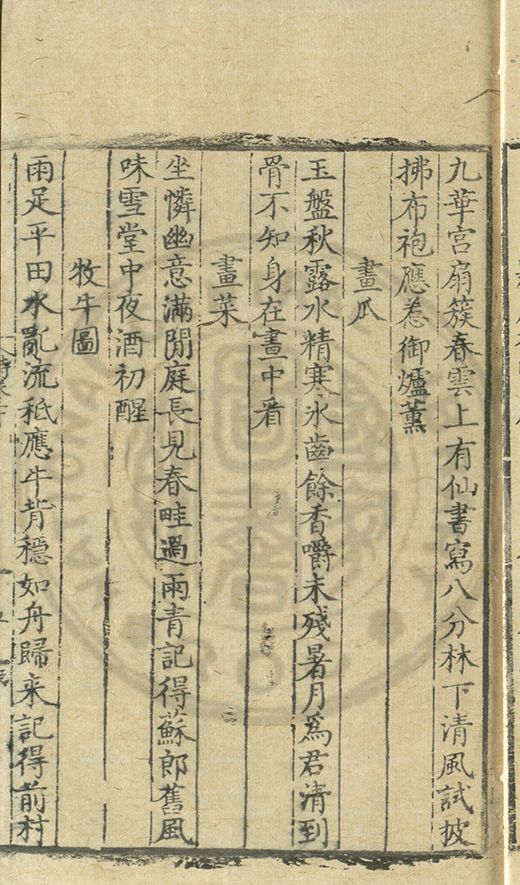 九華宮扇簇春雲上有仙書寫八分林下清風試披
拂布袍應惹御爐薰
畫瓜
玉盤秋露水精寒氷齒餘香嚼未殘暑月為君清到
骨不知身在畫中看
畫菜
坐憐幽意滿閒庭長見春畦過雨青記得蘇郎舊風
味雪堂中夜酒初醒
牧牛圖
雨足平田水亂流秪應牛背穩如舟歸来記得前村